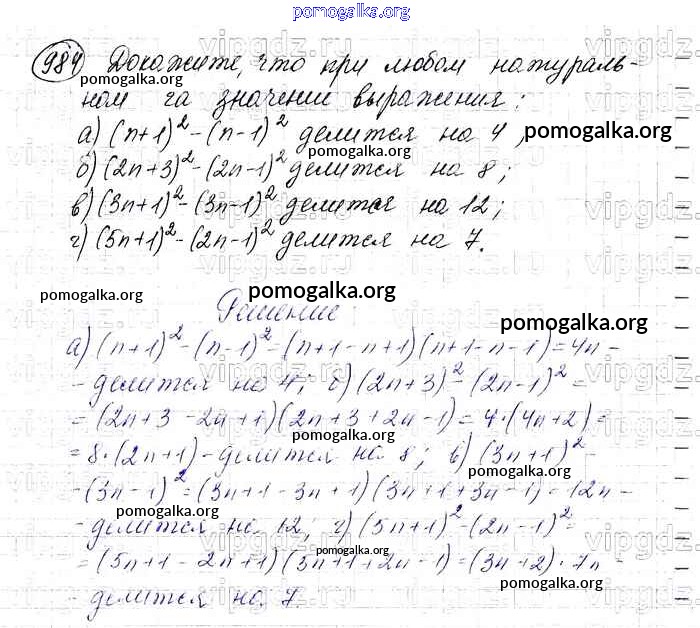 pomogalka.org
984 Докажите, что при любом натураль-
ном га значении выражения:
а) (n+1)² - (n-1)² делится на 4,
б) (2n+3)² - (2n-1)² делится на 8;
в) (3n+1)² - (3n-1)² делится на 12;
г) (5n+1)² - (2n-1)² делится на 7.
Решение:
а) (n+1)² - (n-1)² = (n+1-n+1)(n+1-n-1) = 4n -
- делится на 4; б) (2n+3)² - (2n-1)² =
= (2n+3-2n+1)(2n+3+2n-1) = 4·(4n+2) =
= 8·(2n+1) - делится на 8; в) (3n+1)² -
- (3n-1)² = (3n+1-3n+1)(3n+1+3n-1) = 12n -
- делится на 12; г) (5n+1)² - (2n-1)² =
= (5n+1-2n+1)(5n+1+2n-1) = (3n+2)·7n
- делится на 7.